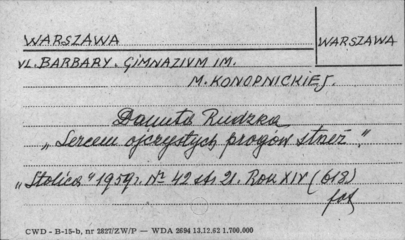 WARSZAWA
WARSZAWA
VL. BARBARY. GIMNAZIVM IM.
M. KONOPNICKIEJ.
Danuta Rudzka
„Sercem ojczystych progów strzeż."
„Stolica" 1959r. Nº 42 str 21. Rok XIV (618)
fot
CWD - B-15-b, nr 2827/ZW/P — WDA 2694 13.12.62 1.700.000